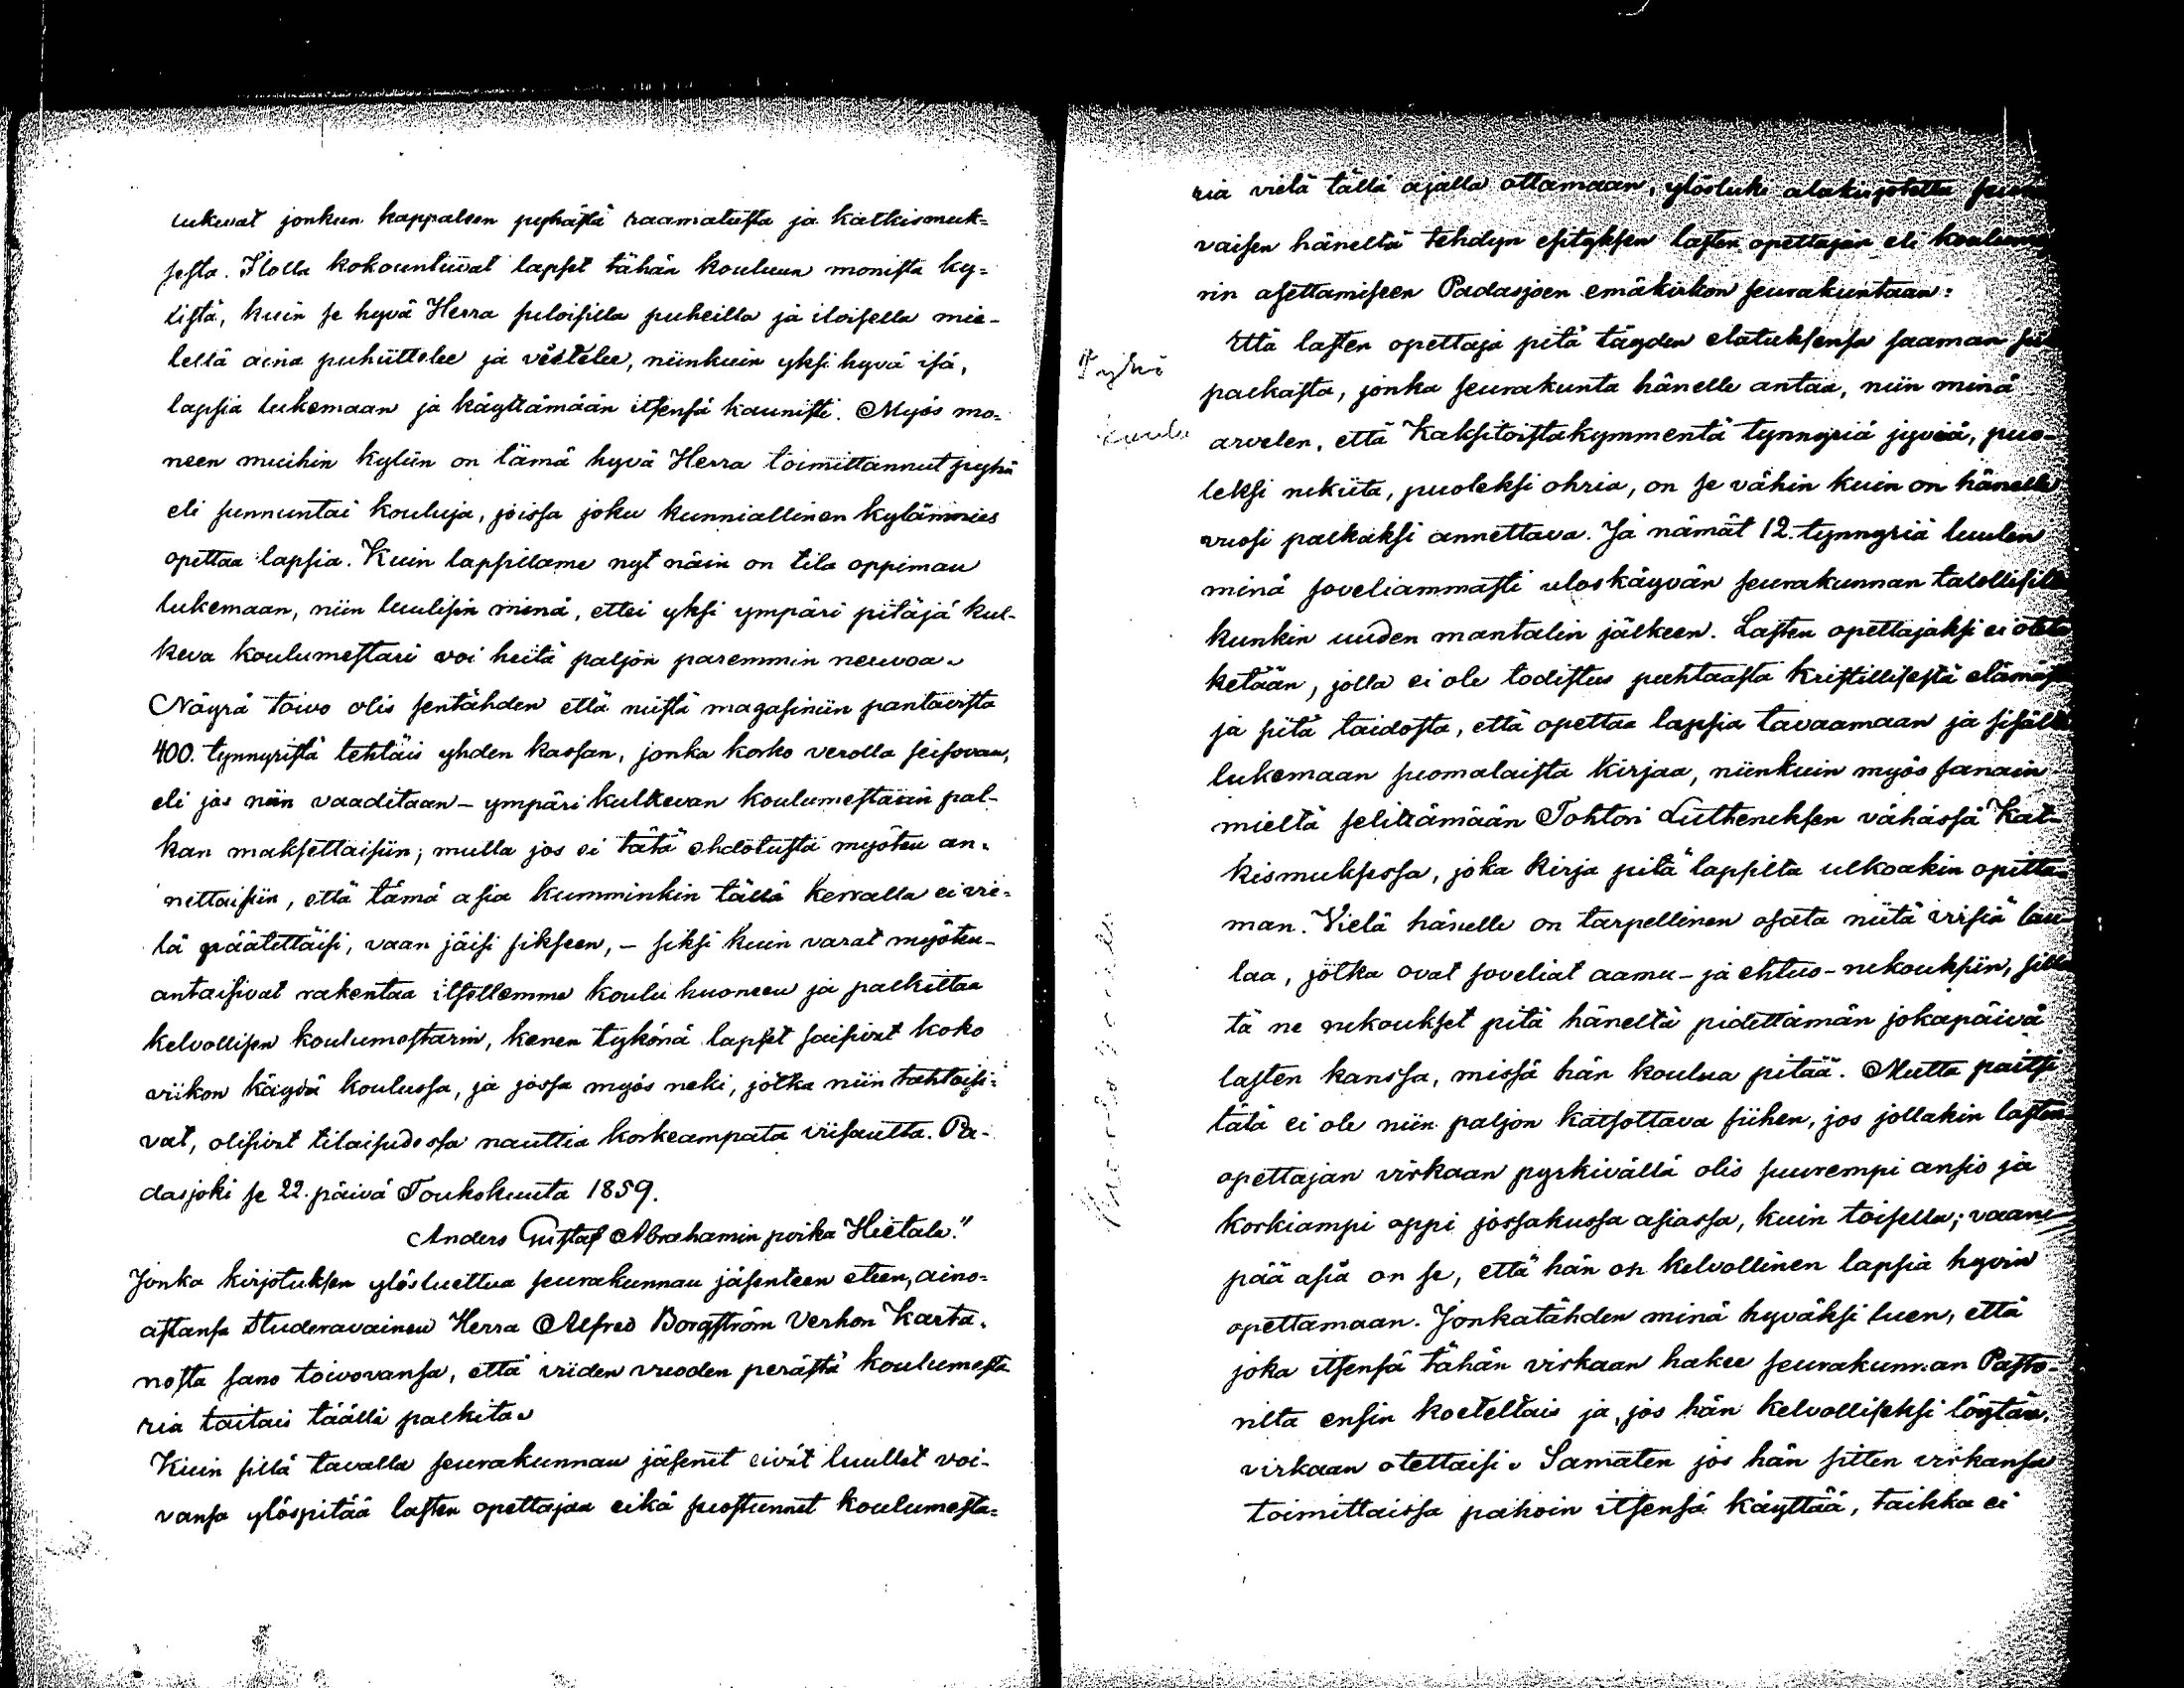 lukevat jonkun kappaleen pyhästä raamatusta ja katkismuk=
sesta. Ilolla kokountuvat lapset tähän kouluun monista ky=
listä, kuin se hyvä Herra suloisilla puheilla ja iloisella mie-
lellä aina puhuttelee ja vestelee, niinkuin yksi hyvä isä,
lapsia lukemaan ja käyttämään itsensä kaunisti. Myös mo=
neen muihin kyliin on tämä hyvä Herra toimittannut pyhä
eli sunnuntai kouluja, joissa joku kunniallinen kylänmies
opettaa lapsia. Kuin lapsilame nyt näin on tila oppimau
lukemaan, niin luulisin minä, ettei yksi ympäri pitäjä kul-
keva koulumestari voi heitä paljon paremmin neuvoa.
Näyrä toivo olis sentähden että niistä magasiniin pantavista
400. tynnyristä tehtäis yhden kassan, jonka korko verolla seisovan,
eli jos niin vaaditaan – ympäri kulkevan koulumestarin pal-
kan maksettaisiin; mulla jos ei tätä ehdotusta myöten an=
nettaisiin, että tämä asia kumminkin tällä kerralla ei vie=
lä päätettäisi, vaan jäisi sikseen, – siksi kuin varat myöten-
antaisivat rakentaa itsellemme koulu huoneen ja palkittaa
kelvollisen koulumestarin, kenen tykönä lapset saisivat koko
viikon käydä koulussa, ja jossa myös neki, jotka niin tahtoisi=
vat, olisivat tilaisudessa nauttia korkeampata viisautta. Pa-
dasjoki se 22. päivä Toukokuuta 1859.
Anders Gustaf Abrahamin poika Hietala."
Jonka kirjotuksen ylösluettua seurakunnan jäsenteen eteen, aino=
astansa Studeravainen Herra Alfred Borgström Verhon Karta=
nosta sano toivovansa, että viiden vuoden perästä koulumesta
ria taitais täällä palkita.
Kuin sillä tavalla seurakunnan jäsenet eivät luullet voi-
vansa ylöspitää lasten opettajaa eikä suostunnet koulumesta=
ria vielä tällä ajalla ottamaan, ylösluki alakirjotettu
vaisen häneltä tehdyn esityksen lasten opettajan eli
rin asettamiseen Padasjoen emäkirkon seurakuntaan:
Että lasten opettaja pitä täyden elatuksensa saaman
Pyhä
palkasta, jonka seurakunta hänelle antaa, niin minä
koulu
arvelen, että Kaksitoistakymmentä tynnyriä jyviä, puo-
leksi rukiita, puoleksi ohria, on se vähin kuin on hänelle
vuosi palkaksi annettava. Ja nämät 12. tynnyriä luulen
minä soveliammasti uloskäyvän seurakunnan talollisilta
kunkin uuden mantalin jälkeen. Lasten opettajaksi ei oteta
ketään, jolla ei ole todistus puhtaasta kristillisestä elämästä
ja siitä taidosta, että opettaa lapsia tavaamaan ja sisältä
lukemaan suomalaista kirjaa, niinkuin myös sanain
mieltä selittämään Tohtori Lutheruksen vähässä Kat-
kismuksessa, joka kirja pitä lapsilta ulkoakin opitta-
man. Vielä hänelle on tarpellinen osata niitä virsiä lau-
laa, jotka ovat soveliat aamu- ja ehtoo-rukouksiin, sillä
tä ne rukoukset pitä häneltä pidettämän jokapäivä
lasten kanssa, missä hän koulua pitää. Mutta paitsi
tätä ei ole niin paljon katsottava siihen, jos jollakin lasten
opettajan virkaan pyrkivällä olis suurempi ansio ja
korkiampi oppi jossakussa asiassa, kuin toisella; vaan
pää asia on se, että hän on kelvollinen lapsia hyvin
opettamaan. Jonkatähden minä hyväksi luen, että
joka itsensä tähän virkaan hakee seurakunnan Pasto-
rilta ensin koeteltais ja, jos hän kelvolliseksi löytän,
virkaan otettaisi. Samaten jos hän sitten virkansa
toimittaissa pahoin itsensä käyttää, taikka ei